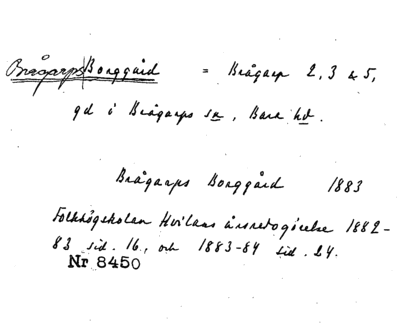 Brågarps Borggård = Brågarp 2, 3 & 5,
gd i Brågarps sn, Bara hd.
Brågarps Borggård 1883
Folkhögskolan Hvilans årsredogörelse 1882-
83 sid. 16, och 1883-84 sid. 24.
Nr 8450